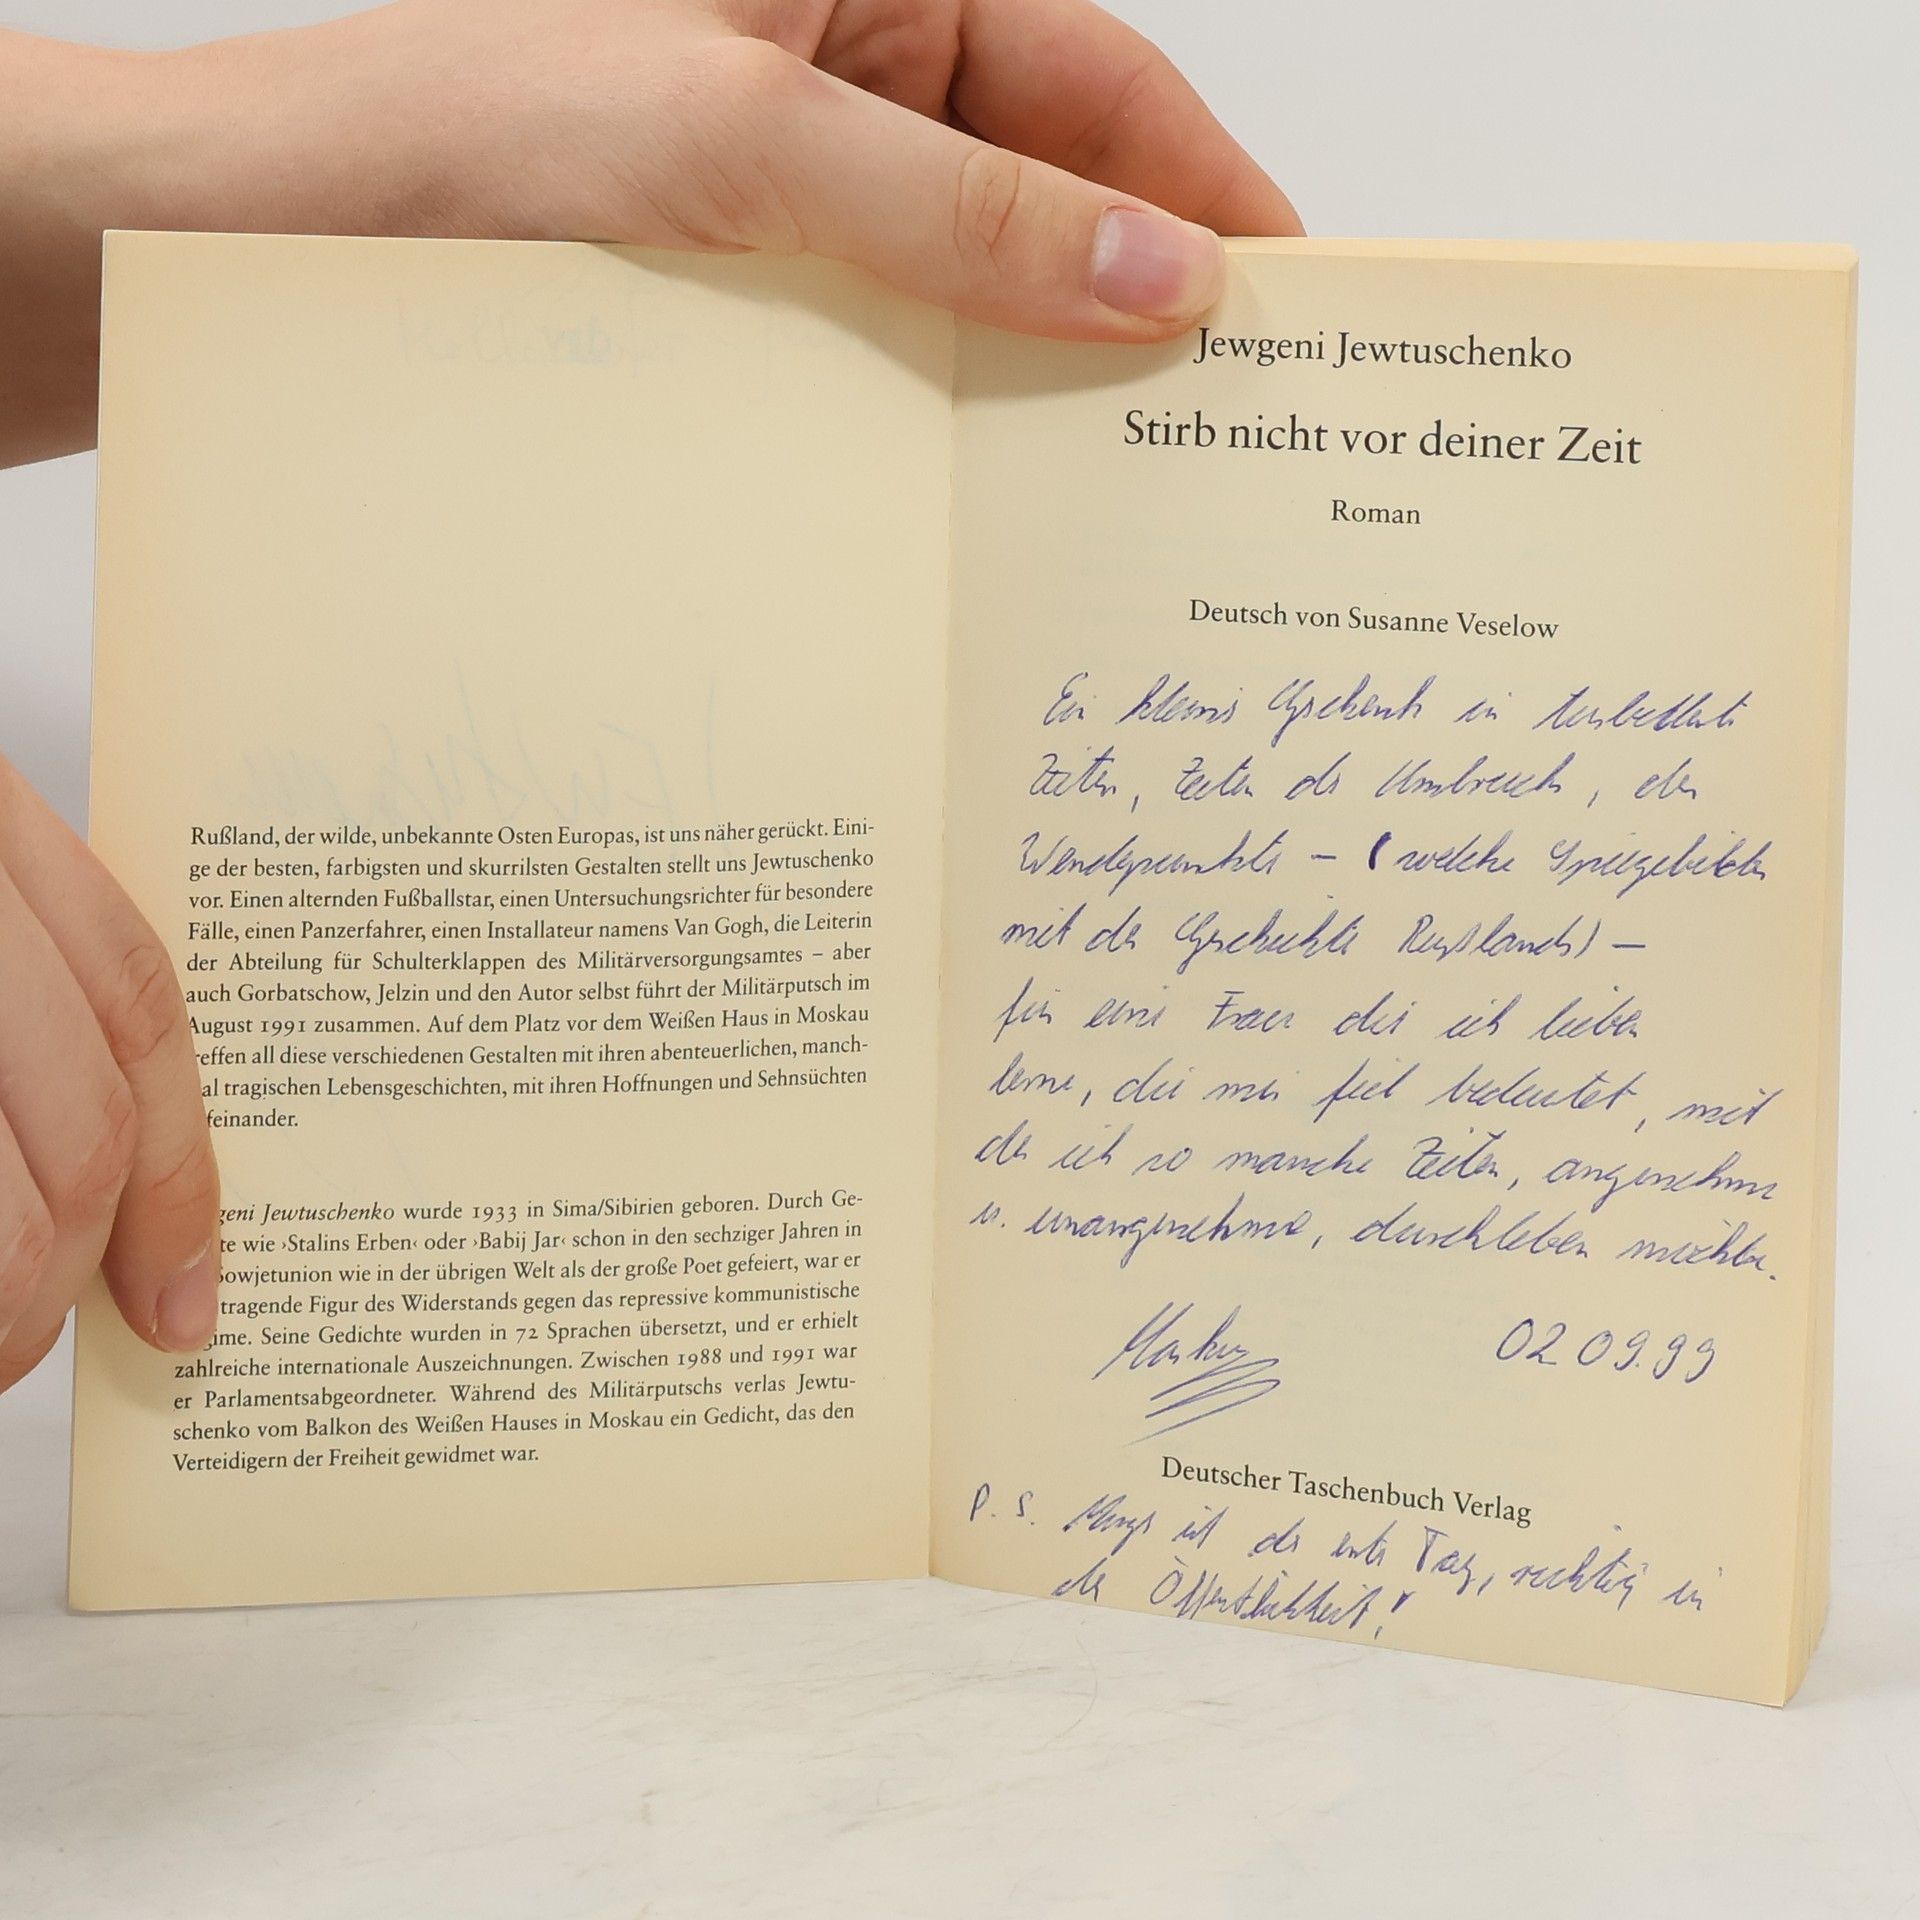 Rußland, der wilde, unbekannte Osten Europas, ist uns näher gerückt. Eini-
ge der besten, farbigsten und skurrilsten Gestalten stellt uns Jewtuschenko
vor. Einen alternden Fußballstar, einen Untersuchungsrichter für besondere
Fälle, einen Panzerfahrer, einen Installateur namens Van Gogh, die Leiterin
der Abteilung für Schulterklappen des Militärversorgungsamtes – aber
auch Gorbatschow, Jelzin und den Autor selbst führt der Militärputsch im
August 1991 zusammen. Auf dem Platz vor dem Weißen Haus in Moskau
reffen all diese verschiedenen Gestalten mit ihren abenteuerlichen, manch-
al tragischen Lebensgeschichten, mit ihren Hoffnungen und Sehnsüchten
feinander.
geni Jewtuschenko wurde 1933 in Sima/Sibirien geboren. Durch Ge-
te wie ›Stalins Erben‹ oder ›Babij Jar‹ schon in den sechziger Jahren in
Sowjetunion wie in der übrigen Welt als der große Poet gefeiert, war er
tragende Figur des Widerstands gegen das repressive kommunistische
gime. Seine Gedichte wurden in 72 Sprachen übersetzt, und er erhielt
zahlreiche internationale Auszeichnungen. Zwischen 1988 und 1991 war
er Parlamentsabgeordneter. Während des Militärputschs verlas Jewtu-
schenko vom Balkon des Weißen Hauses in Moskau ein Gedicht, das den
Verteidigern der Freiheit gewidmet war.
Jewgeni Jewtuschenko
Stirb nicht vor deiner Zeit
Roman
Deutsch von Susanne Veselow
Ein kleines Geschenk in
Zeiten, Zeiten des Umbruchs, der
Wendepunkte – (welche Spiegelbilder
mit der Geschichte Russlands) –
für eine Frau die ich lieben
lerne, die mir fiel bedeutet, mit
der ich so manche Zeiten, angenehme
u. unangenehme, durchleben möchte.
Markus 02 09.99
Deutscher Taschenbuch Verlag
P.S. Morgen ist der erste Tag, richtig in
der Öffentlichkeit!